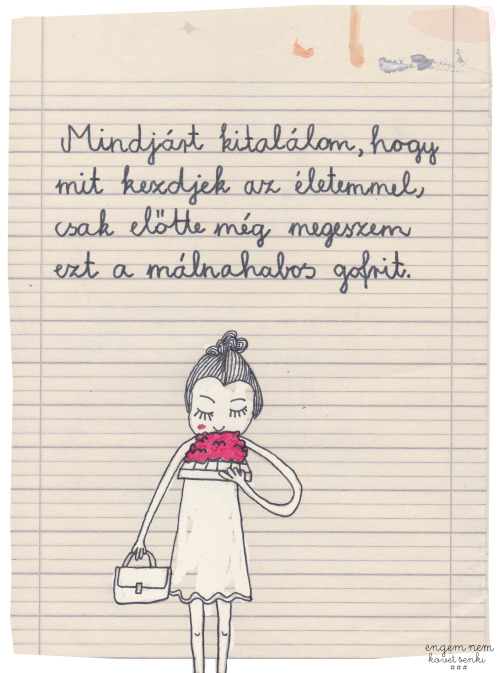 Mindjárt kitalálom, hogy
mit kezdjek az életemmel,
csak előtte még megeszem
ezt a málnahabos gofrit.
engem nem
követ senki
###